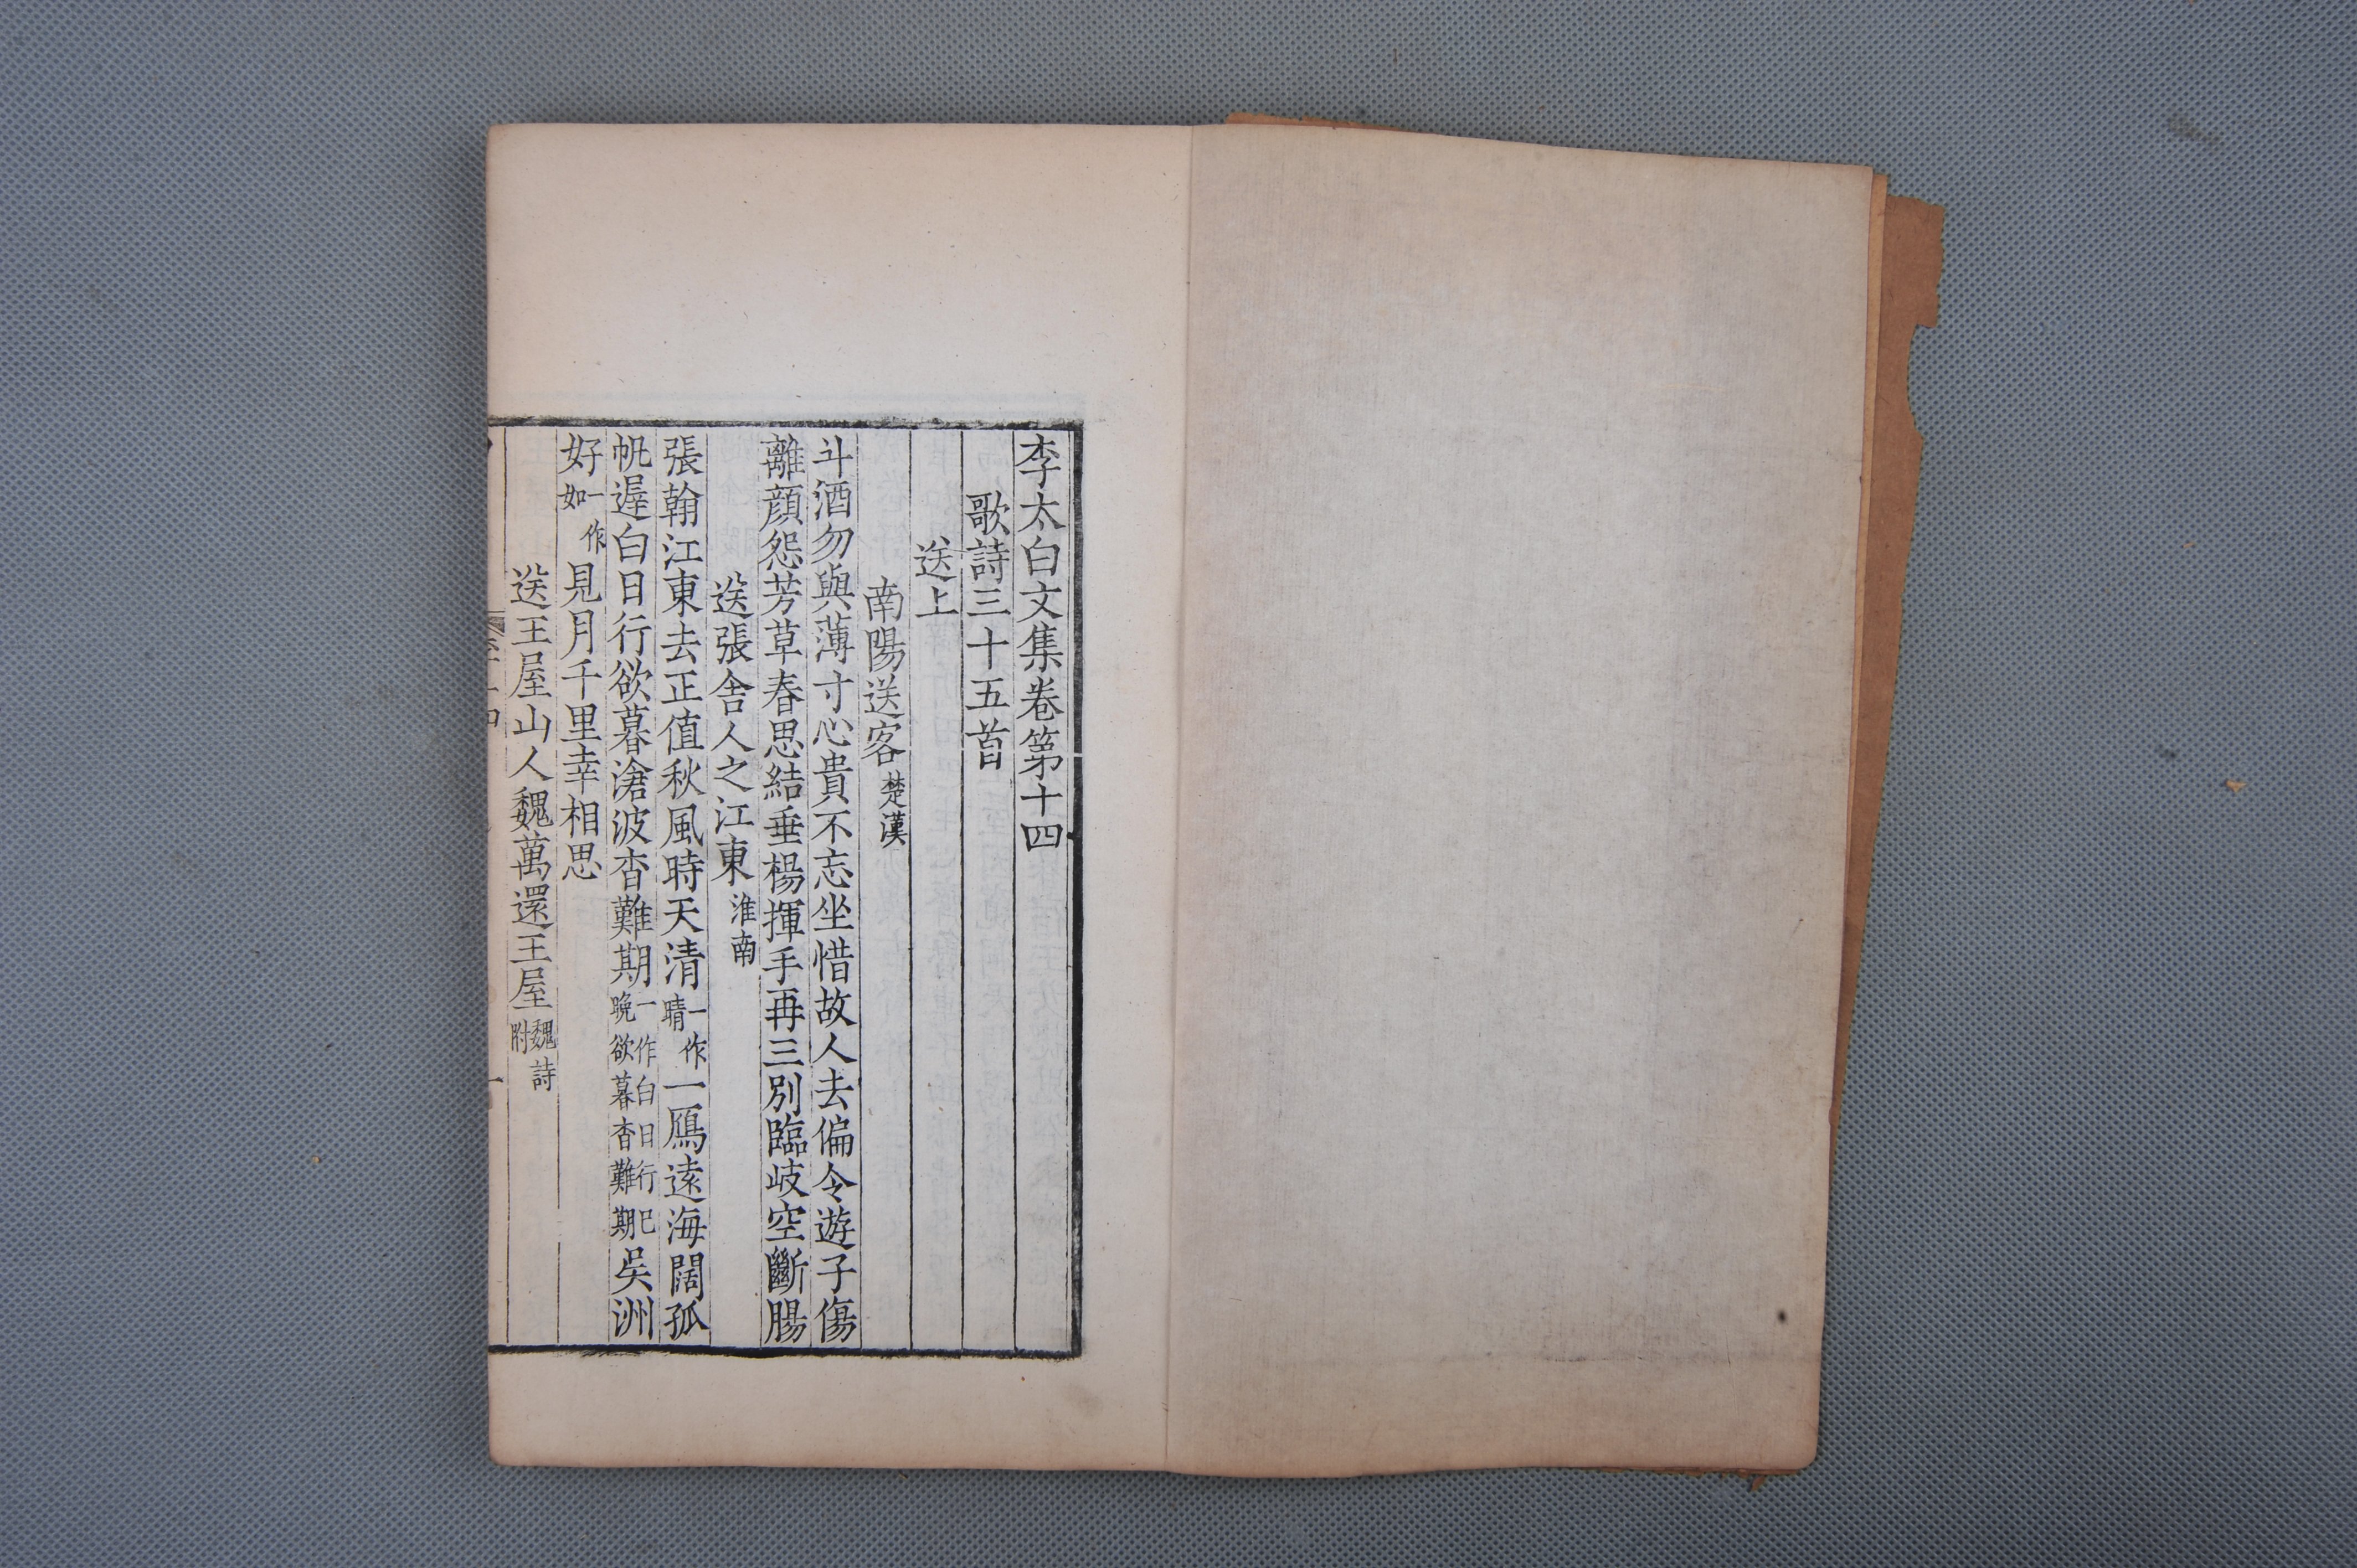 李太白文集卷第十四
歌詩三十五首
送上
南陽送客楚漢
斗酒勿與薄寸心貴不忘坐惜故人去偏令遊子傷
離顏怨芳草春思結垂楊揮手再三別臨歧空斷腸
送張舍人之江東淮南
張翰江東去正值秋風時天清一作晴一鴈遠海闊孤
帆遲白日行欲暮滄波杳難期一作白日行已晚欲暮杳難期吳洲
好一作如見月千里幸相思
送王屋山人魏萬還王屋魏詩附